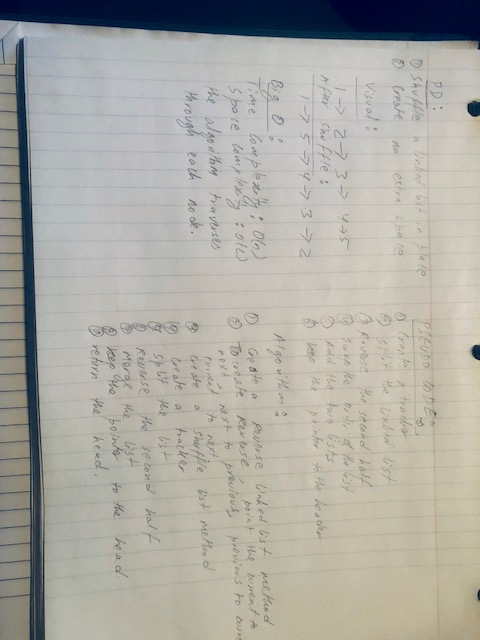 PD:
① Shuffle a linked list in place
② Create no extra space
Visual:
1 -> 2 -> 3 -> 4 -> 5
After shuffle:
1 -> 5 -> 4 -> 3 -> 2
Big O:
Time complexity: O(n)
Space complexity: O(1)
the algorithm traverses
through each node.
PSEUDO CODE:
① Create a tracker
② split the linked list
③ Reverse the second half
④ the order of the list
⑤ Add the two lists
⑥ keep the pointer to the header
Algorithm:
① Create a reverse linked list method
② To create reverse, point the current to
next, next to previous, previous to
current to next
③ create a shuffle list method
④ create a tracker
⑤ split the list
reverse the second half
merge the list
keep the pointer to the head
return the head.